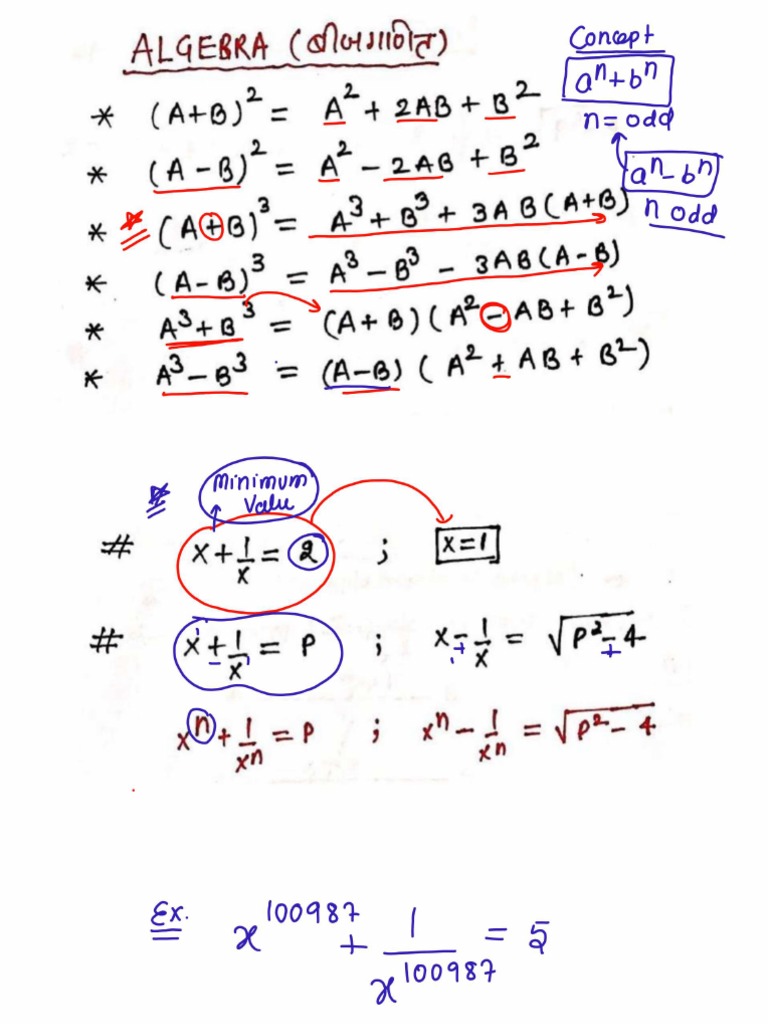 ALGEBRA (बीजगणित)
Concept
aⁿ+bⁿ
n = odd
aⁿ-bⁿ
n odd
* (A+B)² = A² + 2AB + B²
* (A-B)² = A² - 2AB + B²
* (A+B)³ = A³ + B³ + 3AB(A+B)
* (A-B)³ = A³ - B³ - 3AB(A-B)
* A³+B³ = (A+B)(A² - AB + B²)
* A³-B³ = (A-B)(A² + AB + B²)
Minimum
Valu
# x + 1/x = 2 ; x=1
# x + 1/x = P ; x - 1/x = √(P²-4)
- + +
xⁿ + 1/xⁿ = P ; xⁿ - 1/xⁿ = √(P²-4)
Ex. x¹⁰⁰⁹⁸⁷ + 1/x¹⁰⁰⁹⁸⁷ = 5